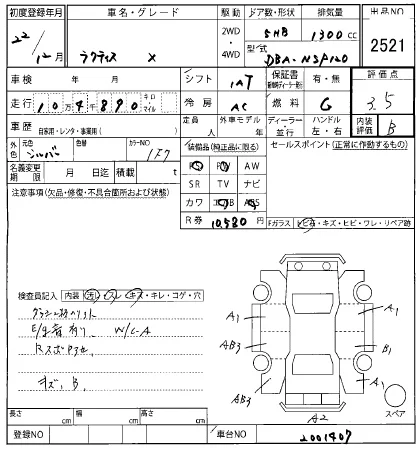 初度登録年月 車名・グレード 駆動 ドア数・形状 排気量 出品NO
22/12月 ラクティス X 2WD・4WD 5HB 1300cc 2521
型式 DBA-NSP120
車検 年 月 シフト IAT 保証書 有・無 評価点
走行 10万4千890 キロ・マイル 冷房 AC 燃料 G 3.5
車歴 自家用・レンタ・事業用( ) 外車モデル 年 ディーラー・並行 ハンドル 左・右 内装評価 B
外色 元色 シルバー 色替 カラーNO 1F7 装備品(純正品に限る) セールスポイント(正常に作動するもの)
名義変更期限 月 日迄 積載 t AW
注意事項(欠品・修復・不具合箇所および状態) SR TV ナビ
カワ ABS
R券 10,580 Fガラス トビ石・キズ・ヒビ・ワレ・リペア跡
検査員記入 内装 汚レ・スレ・キズ・キレ・コゲ・穴
W/C-A
キズ、B、
A1 A1
AB3 B1
AB3 A1
A2 スペア
長さ cm 幅 cm 高さ cm
登録NO 車台NO 2001407